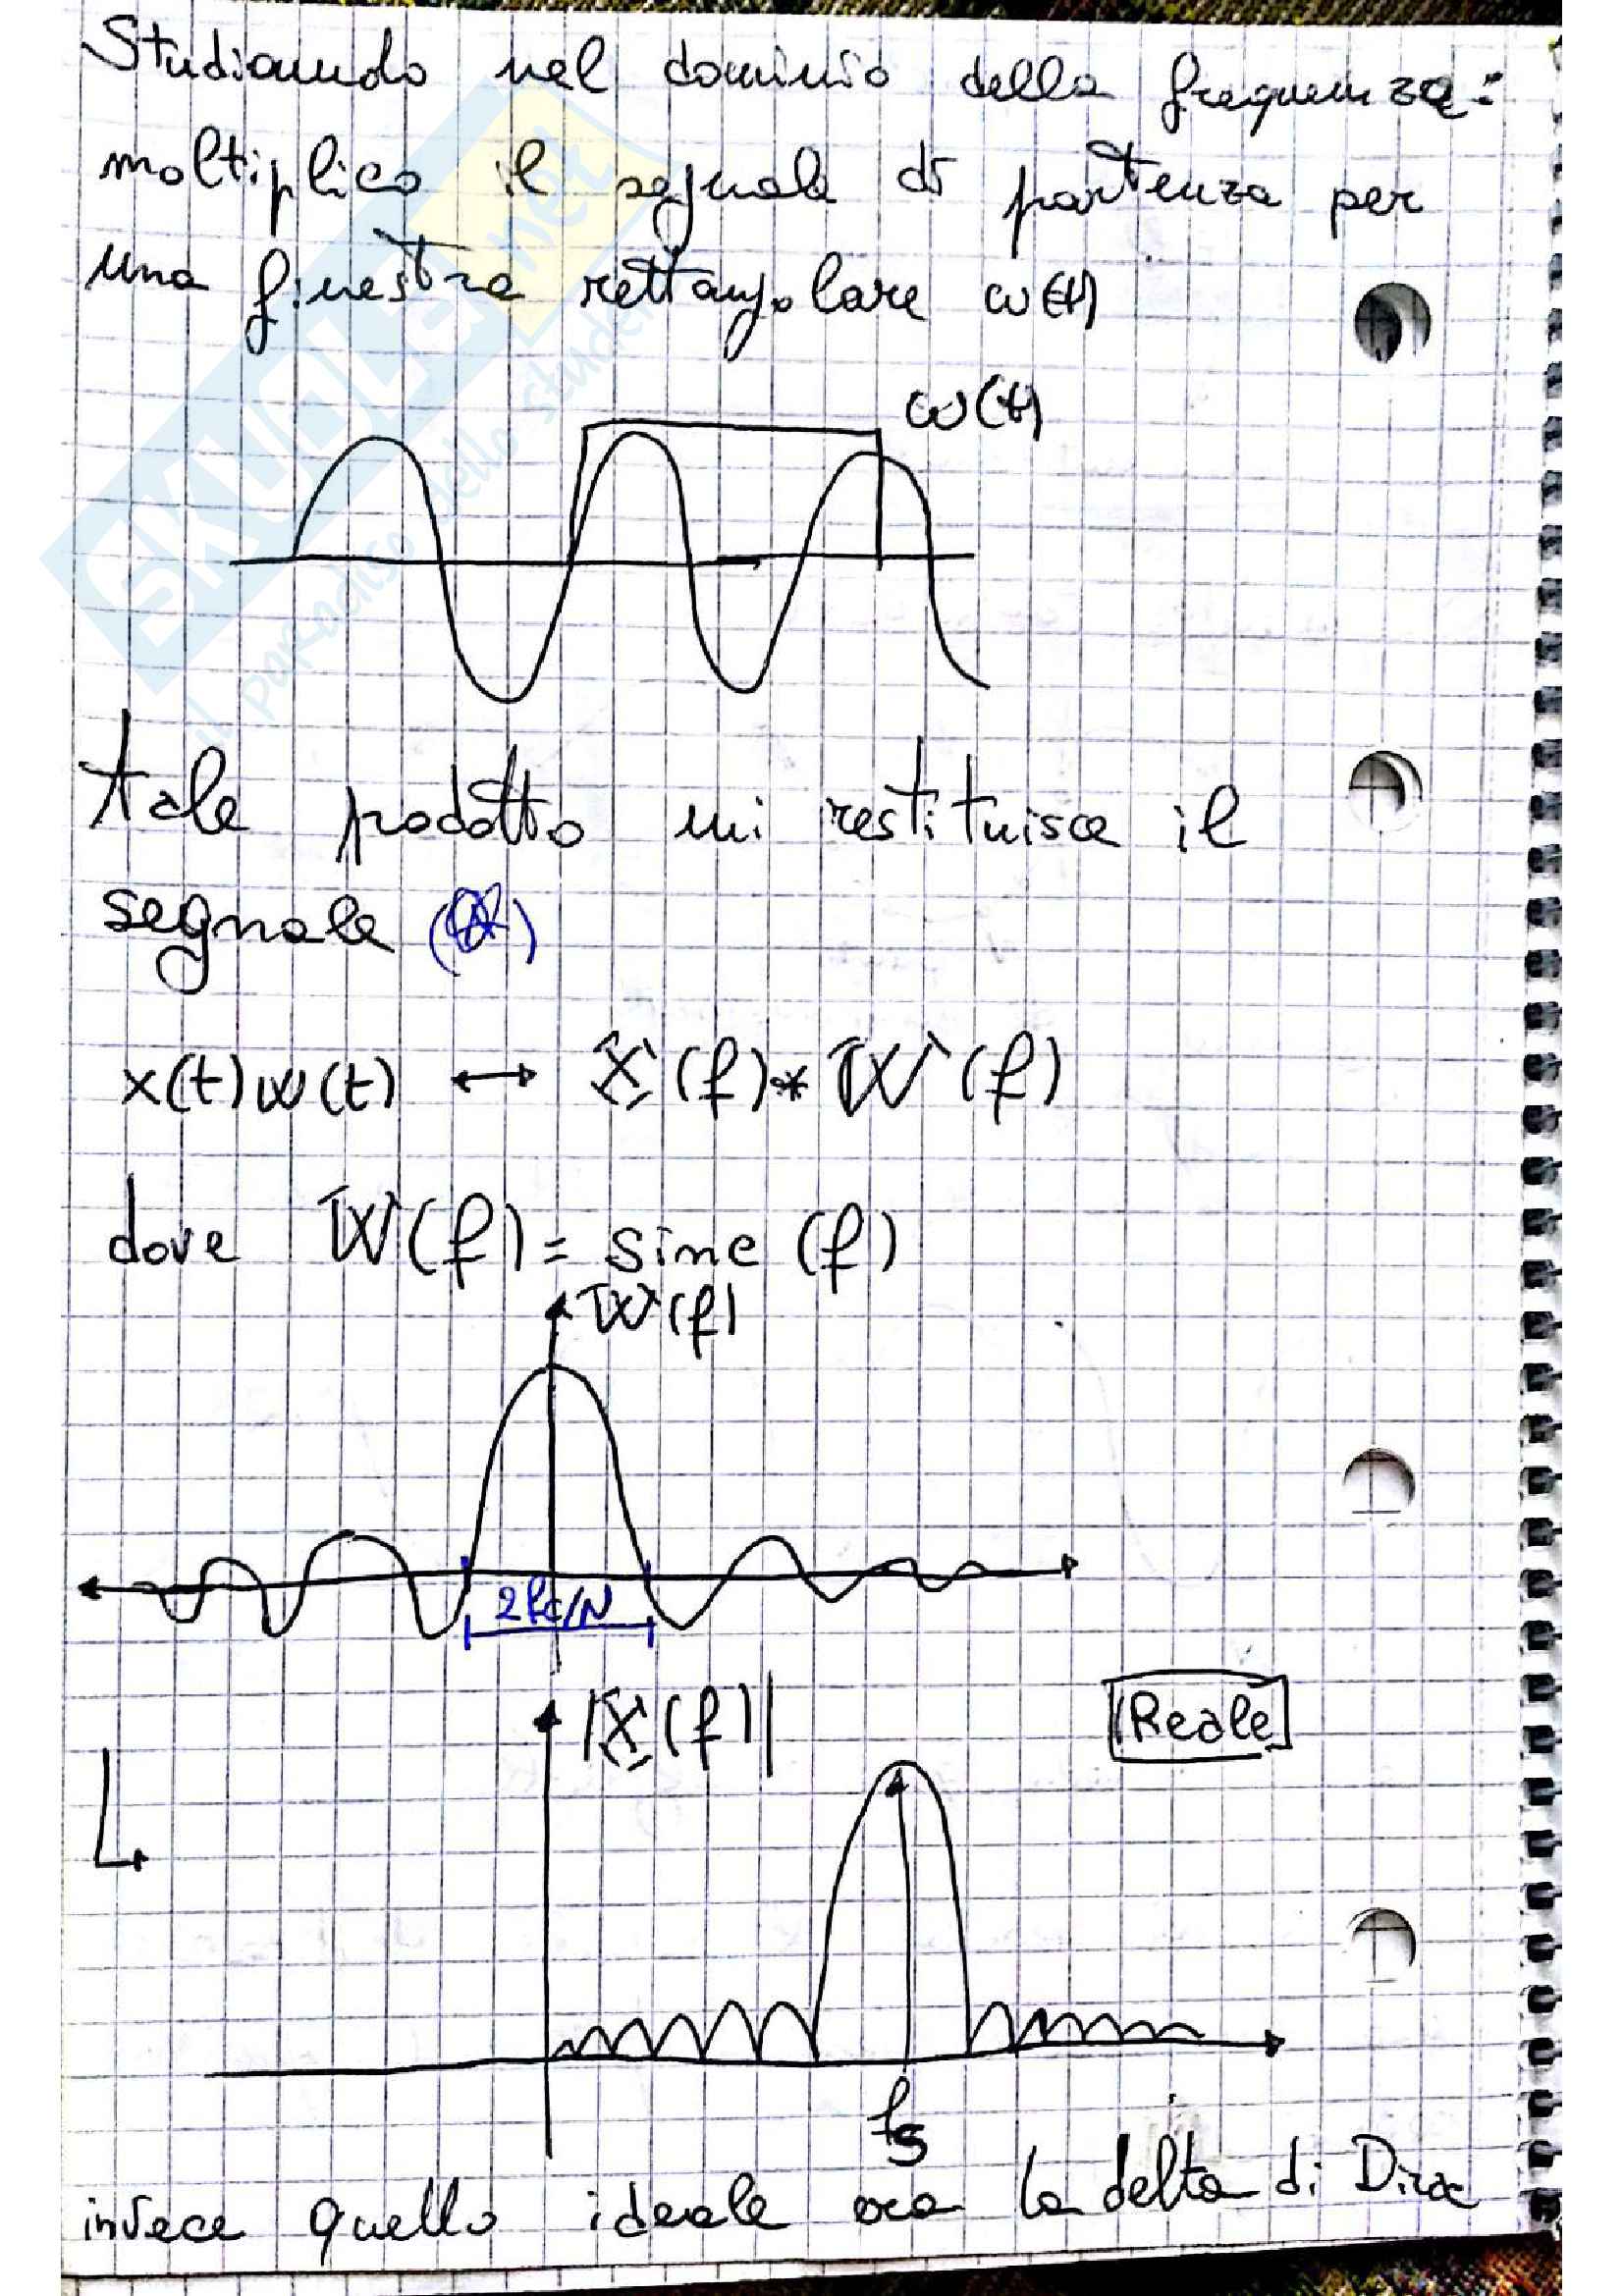 Studiando nel dominio della frequenza:
moltiplico il segnale di partenza per
una finestra rettangolare w(t)
w(t)
Tale prodotto mi restituisce il
segnale
x(t)w(t) ↔ X(f)*W(f)
dove W(f) = sinc (f)
W(f)
2fc/N
|X(f)|
Reale
fs
invece quello ideale era la delta di Dirac
SKUOLA.net
il paradiso dello studente